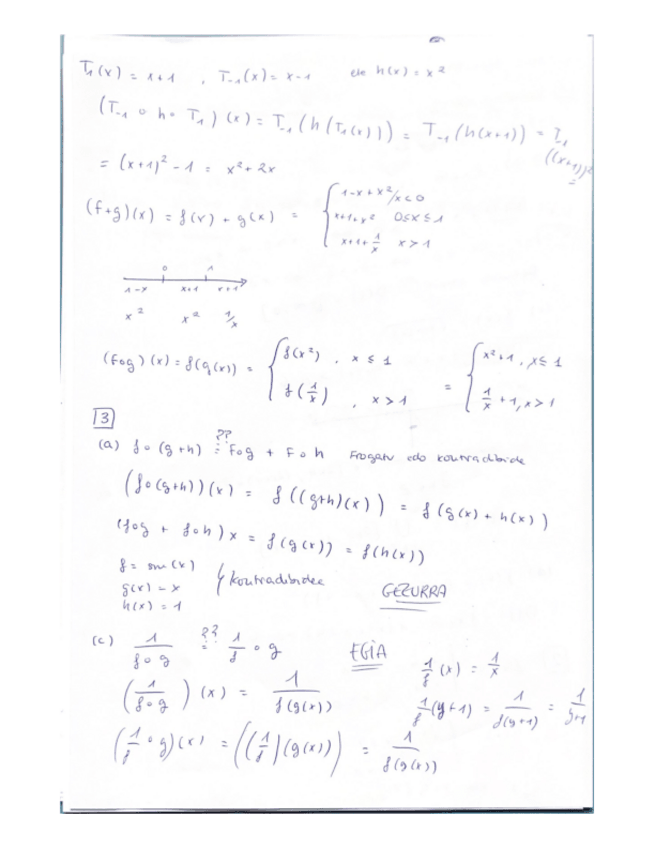 T₁(x) = x+1 , T₋₁(x) = x-1 eta h(x) = x²
(T₋₁ ∘ h ∘ T₁)(x) = T₋₁(h(T₁(x))) = T₋₁(h(x+1)) = T₋₁((x+1)²)
= (x+1)² - 1 = x² + 2x
(f+g)(x) = f(x) + g(x) = { 1-x+x² / x<0
x+1+x² 0≤x≤1
x+1+1/x x>1
0 1
1-x x+1 x+1
x² x² 1/x
(f∘g)(x) = f(g(x)) = { f(x²) , x ≤ 1 = { x²+1 , x ≤ 1
f(1/x) , x > 1 1/x + 1 , x > 1
13
(a) f∘(g+h) =?? f∘g + f∘h Frogatu edo kontradibide
(f∘(g+h))(x) = f((g+h)(x)) = f(g(x) + h(x))
(f∘g + f∘h)x = f(g(x)) = f(h(x))
f = sin(x)
g(x) = x kontradibidea GEZURRA
h(x) = 1
(c) 1/(f∘g) =?? 1/f ∘ g EGIA 1/f (x) = 1/x
(1/(f∘g))(x) = 1/f(g(x)) 1/f (y+1) = 1/f(y+1) = 1/(y+1)
(1/f ∘ g)(x) = ((1/f)(g(x))) = 1/f(g(x))